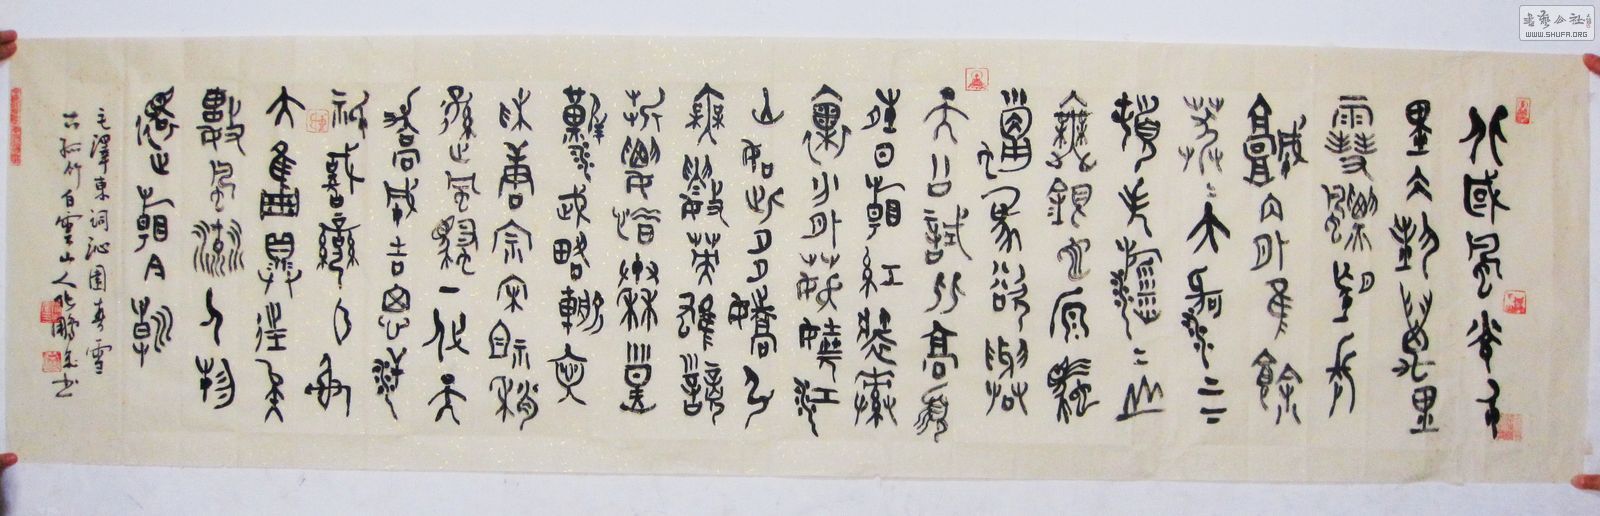 北國風光千
里冰封萬里
雪飄望長
城內外惟餘
莽〻大河上下
頓失滔〻山
舞銀蛇原馳
蠟象欲與
天公試比高須
晴日看紅裝素
裹分外妖嬈江
山如此多嬌引
無數英雄競
折腰惜秦皇
漢武略輸文
采唐宗宋祖稍
遜風騷一代天
驕成吉思汗
只識彎弓射
大雕俱往矣
數風流人物
還看今朝
毛澤東詞沁園春雪
古孤竹白雲山人 鵬 书
書藝公社
WWW.SHUFA.ORG